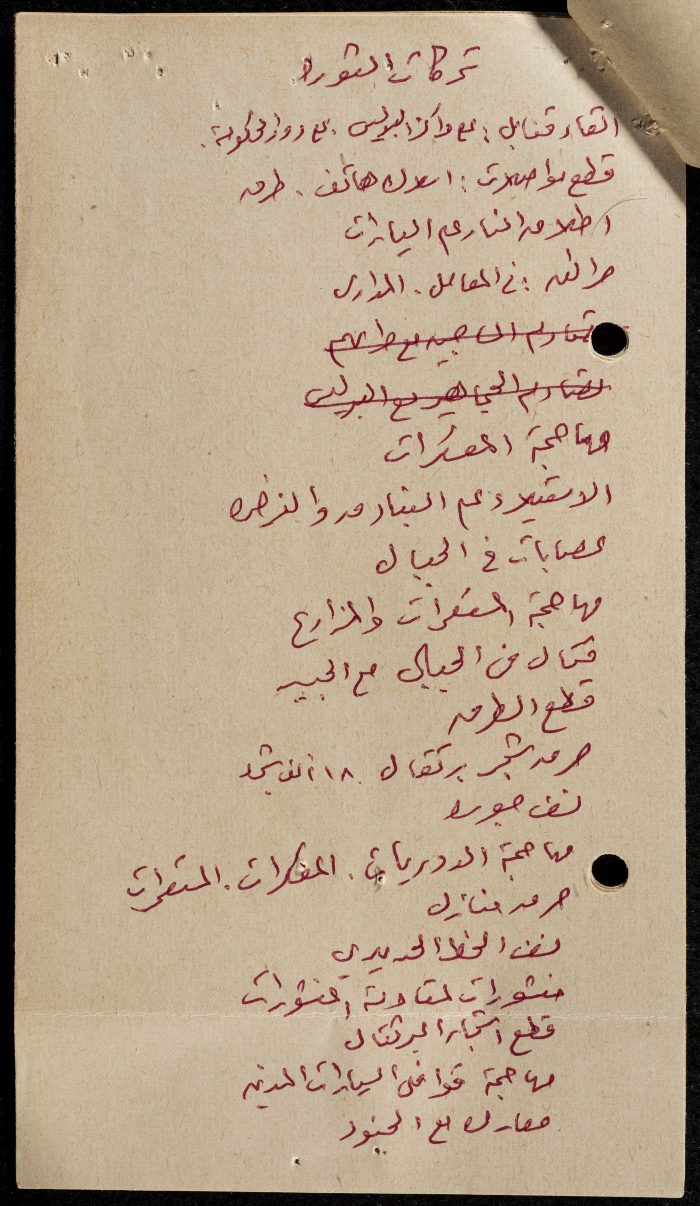 تحركات الثورة
القاء قنابل : على مراكز البوليس . على دوائر الحكومة .
قطع مواصلات : اسلاك هاتف . طرق
اطلاق النار على السيارات
حرائق : في المعامل . المدارس
تصادم
تصادم الجماهير مع البوليس
مهاجمة المعسكرات
الاستيلاء على البنادق والذخيرة
عصابات في الجبال
مهاجمة المستعمرات والمزارع
قتال في الجبال مع الجيش
قطع الطرق
حرق شجر برتقال ١٨ الف شجرة
نسف جسور
مهاجمة الدوريات . المعسكرات . المستعمرات
حرق منازل
نسف الخط الحديدي
منشورات لمقاومة المنشورات
قطع اشجار البرتقال
مهاجمة قوافل السيارات
معارك مع الجنود